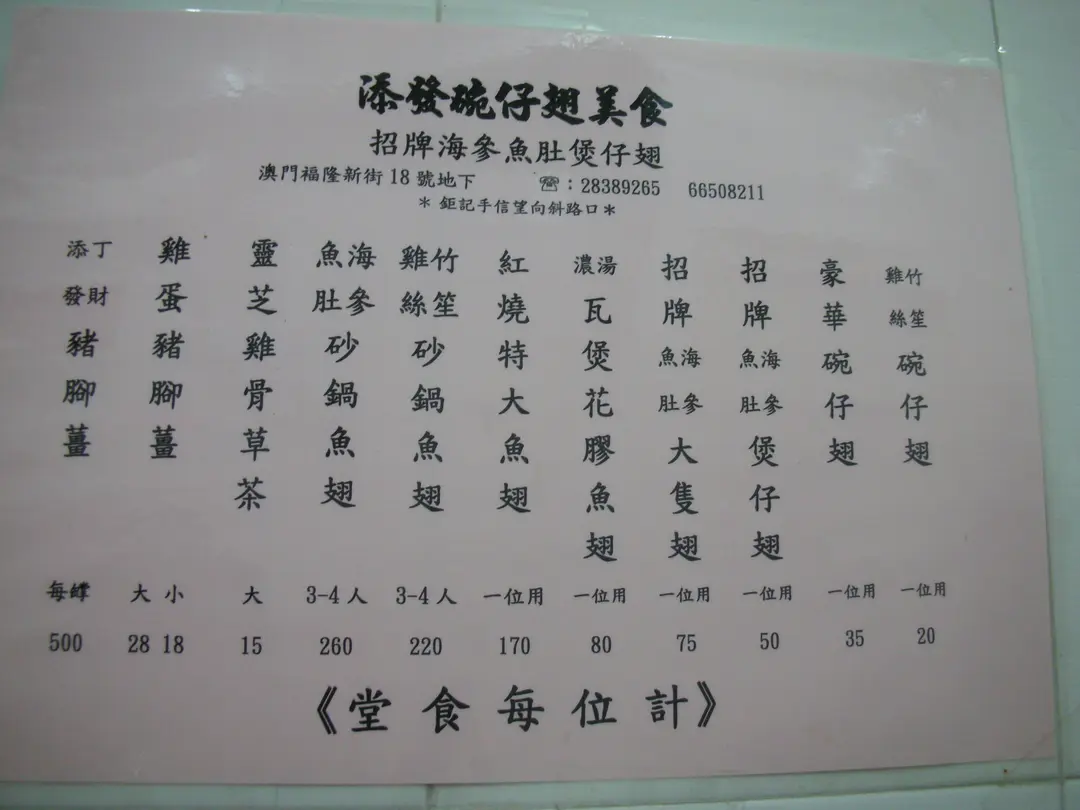 添發碗仔翅美食
招牌海參魚肚煲仔翅
澳門福隆新街18號地下 ☏：28389265 66508211
＊ 鉅記手信望向斜路口＊
竹笙雞絲碗仔翅
豪華碗仔翅
招牌海參魚肚煲仔翅
招牌海參魚肚大隻翅
濃湯瓦煲花膠魚翅
紅燒特大魚翅
竹笙雞絲砂鍋魚翅
海參魚肚砂鍋魚翅
靈芝雞骨草茶
雞蛋豬腳薑
添丁發財豬腳薑
每 大 小 大 3-4人 3-4人 一位用 一位用 一位用 一位用 一位用 一位用
500 28 18 15 260 220 170 80 75 50 35 20
《堂食每位計》